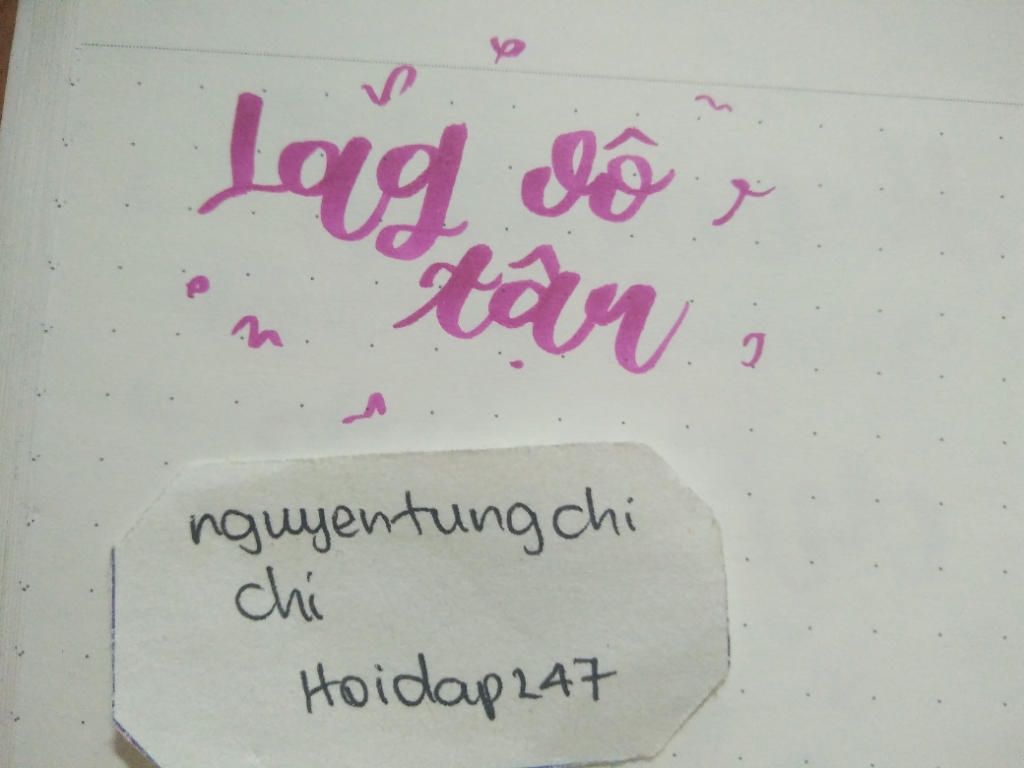 Lag vô
tận
nguyentungchi
chi
Hoidap247